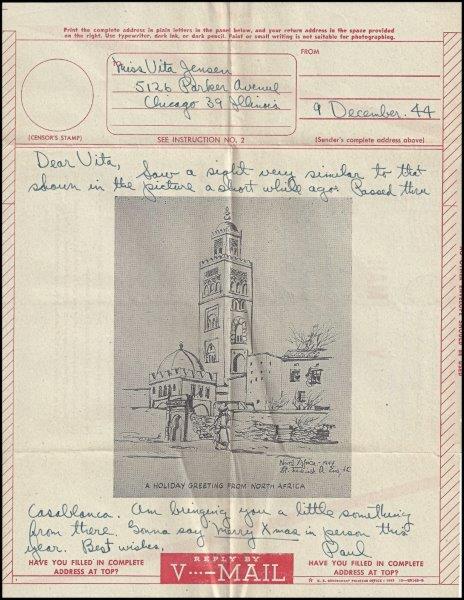 Print the complete address in plain letters in the panel below, and your return address in the space provided
on the right. Use typewriter, dark ink, or dark pencil. Faint or small writing is not suitable for photographing.
FROM
Miss Vita Jensen
5126 Parker Avenue
Chicago 39 Illinois
9 December. 44
(CENSOR'S STAMP)
SEE INSTRUCTION NO. 2
(Sender's complete address above)
Dear Vita,
Saw a sight very similar to that
shown in the picture a short while ago. Passed thru
North Africa - 1944
A HOLIDAY GREETING FROM NORTH AFRICA
Casablanca. Am bringing you a little something
from there. Gonna say Merry Xmas in person this
year. Best wishes.
Paul
HAVE YOU FILLED IN COMPLETE
ADDRESS AT TOP?
REPLY BY
V···—MAIL
HAVE YOU FILLED IN COMPLETE
ADDRESS AT TOP?
U. S. GOVERNMENT PRINTING OFFICE : 1943